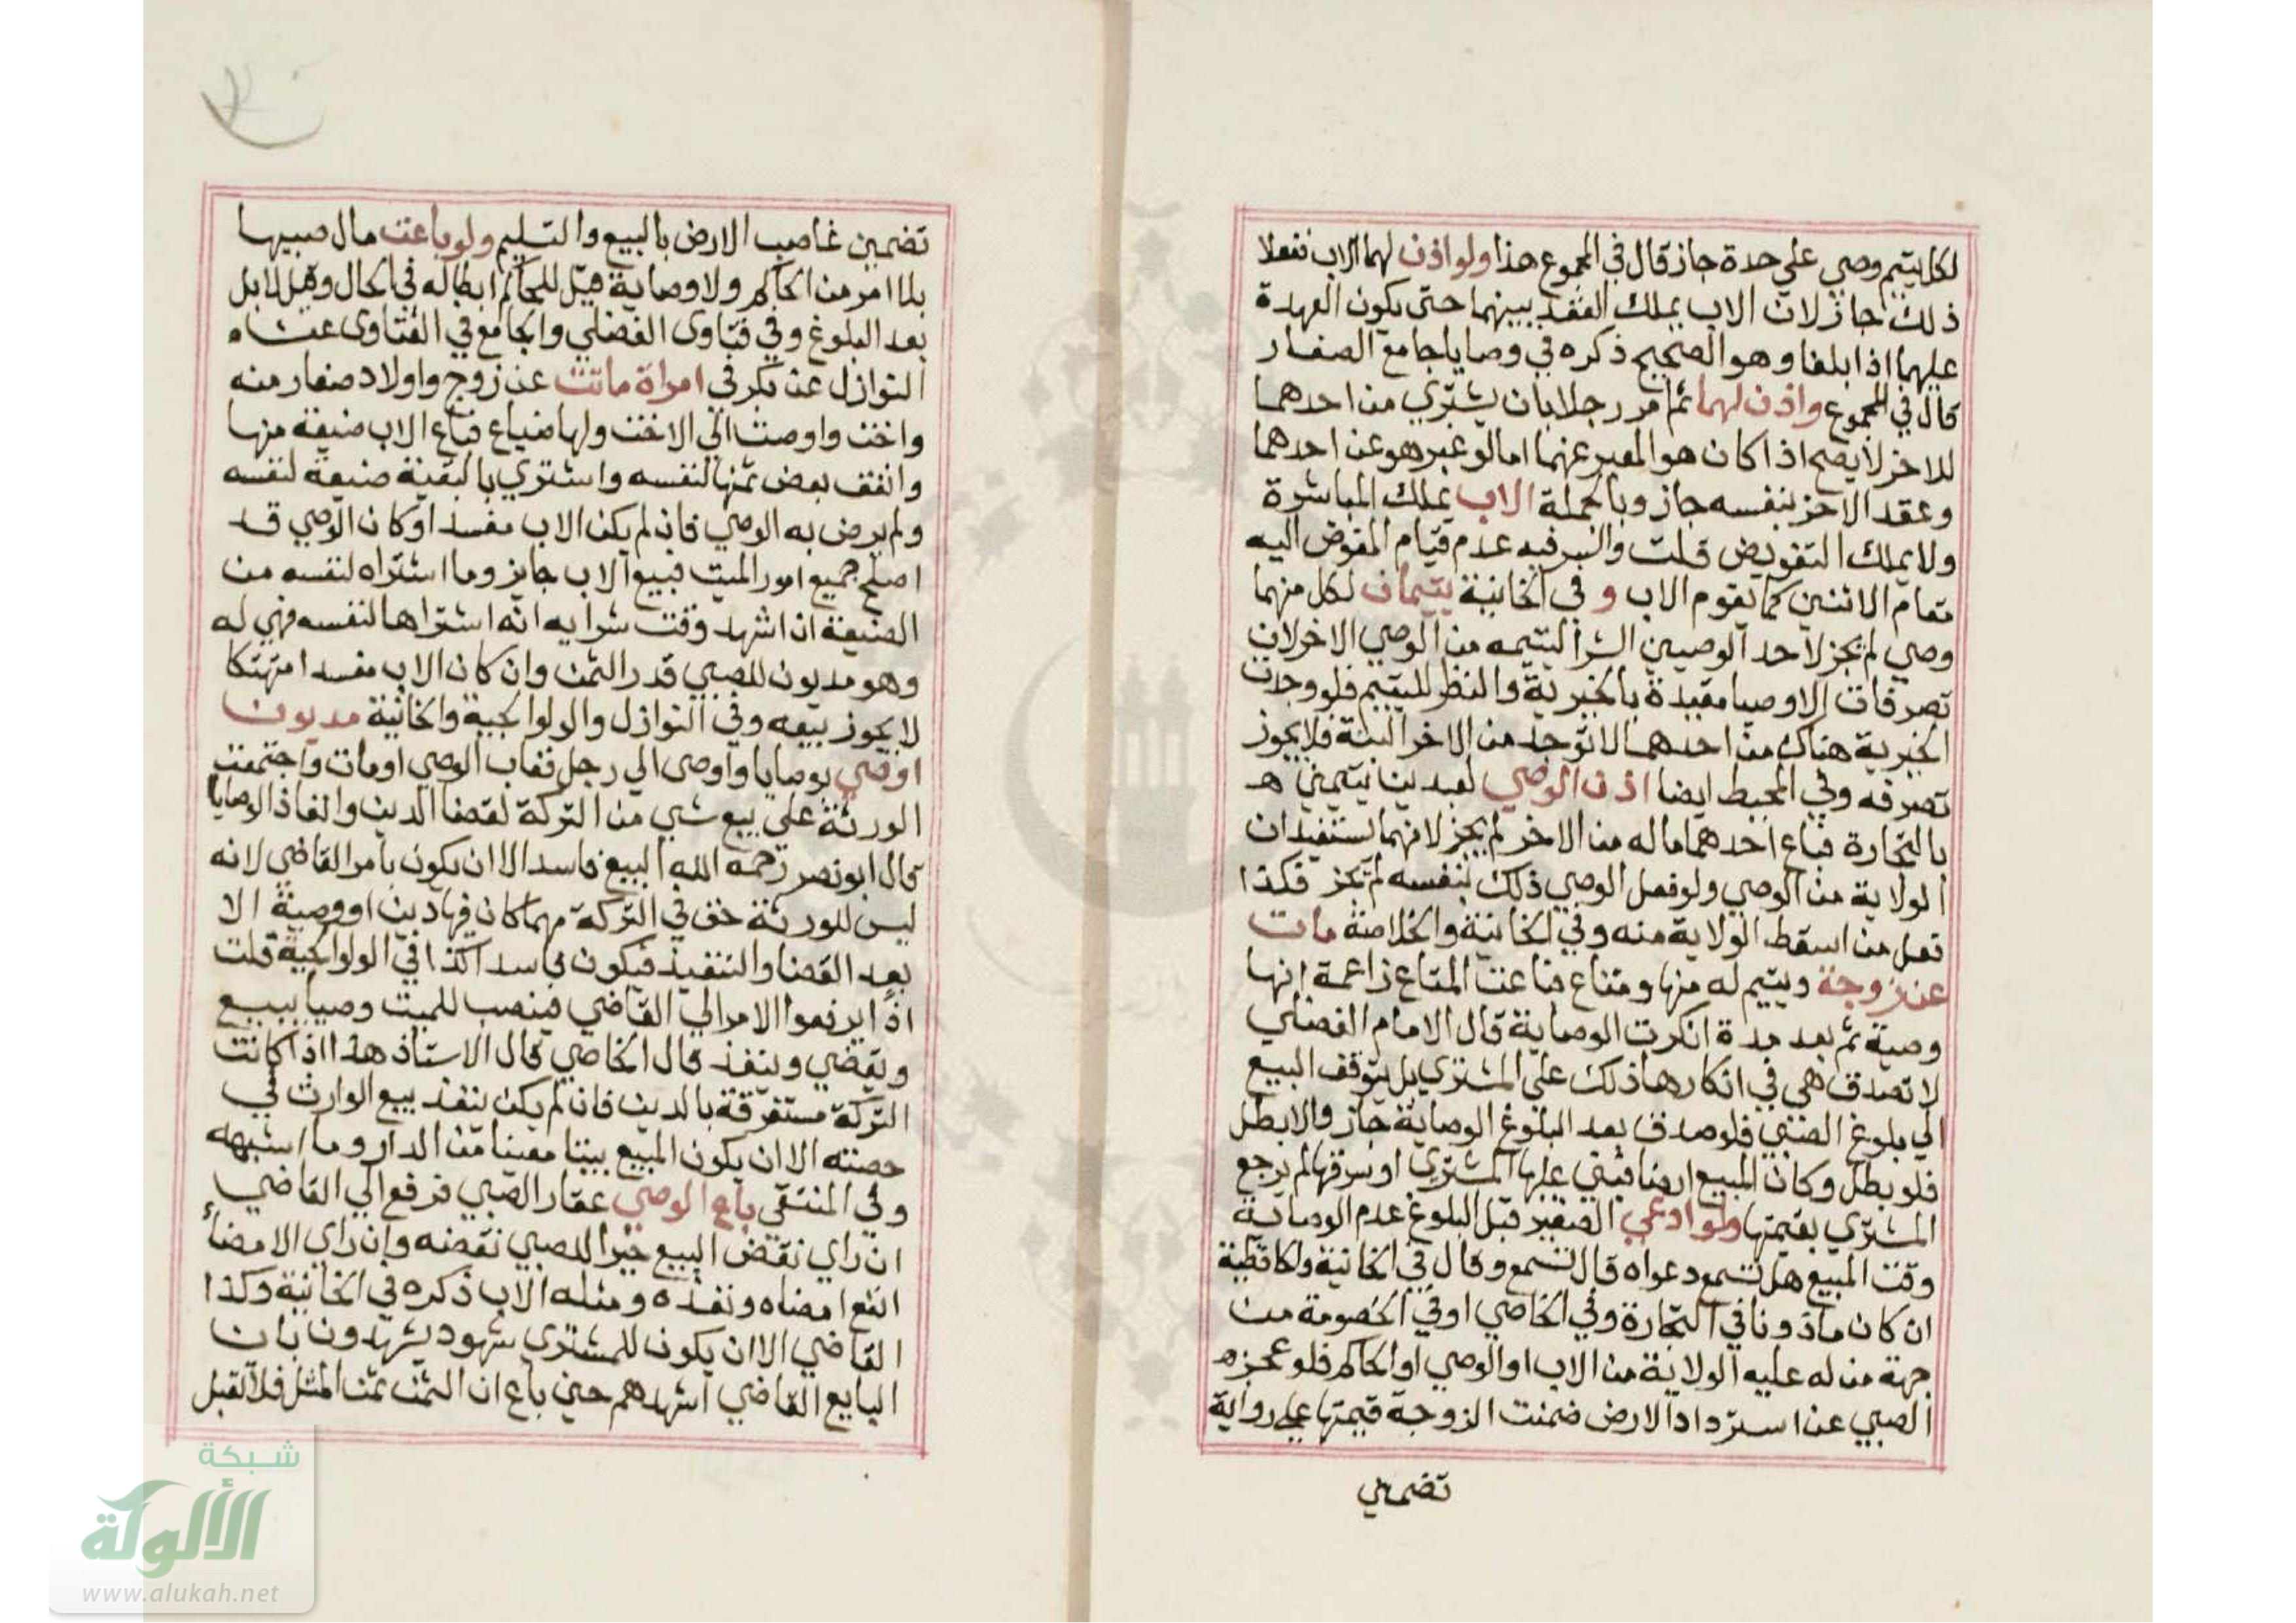 لكل يتيم وصي علي حدة جاز قال في المجموع هذا ولو اذن لهما الاب ففعلا
ذلك جاز لان الاب يملك العقد بينهما حتى يكون العهدة
عليهما اذا بلغا وهو الصحيح ذكره في وصايا جامع الصغار
قال في المجموع واذن لهما ثم امر رجلا بان يشتري من احدهما
للاخر لا يصح اذا كان هو المعبر عنهما اما لو عبر هو عن احدهما
وعقد الاخر بنفسه جاز وبالجملة الاب يملك المباشرة
ولا يملك التفويض قلت والسر فيه عدم قيام المفوض اليه
مقام الاثنين كما يقوم الاب و في الخانية يتيمان لكل منهما
وصي لم يجز لاحد الوصيين الشرا ليتيمه من الوصي الاخر لان
تصرفات الاوصيا مقيدة بالخيرية والنظر لليتيم فلو وجدت
الخيرية هناك من احدهما لا توجد من الاخر البتة فلا يجوز
تصرفه وفي المحيط ايضا اذن الوصي لعبدين يتيمين هـ
بالتجارة فباع احدهما ماله من الاخر لم يجز لانهما يستفيدان
الولاية من الوصي ولو فعل الوصي ذلك بنفسه لم يجز فكذا
فعل من اسقط الولاية منه وفي الخانية والخلاصة مات
عن زوجة ويتيم له منها ومتاع فباعت المتاع زاعمة انها
وصية ثم بعد مدة انكرت الوصاية قال الامام الفضلي
لا تصدق هي في انكارها ذلك على المشتري بل يتوقف البيع
الي بلوغ الصبي فلو صدق بعد البلوغ الوصاية جاز والا بطل
فلو بطل وكان المبيع ارضا فبني عليها المشتري او سرقنها لم يرجع
المشتري بقيمتها ولو ادعي الصغير قبل البلوغ عدم الوصاية
وقت المبيع هل تسمع دعواه قال تسمع وقال في الخانية
ان كان ماذونا في التجارة وفي الخاصي او في الخصومة من
جهة من له عليه الولاية من الاب او الوصي او الحاكم فلو عجزه
الصبي عن استرداد الارض ضمنت الزوجة قيمتها علي رواية
تضمين
تضمين غاصب الارض بالبيع والتسليم ولو باعت مال صبيها
بلا امر من الحاكم ولا وصاية قيل للحاكم ابطاله في الحال وقيل لا بل
بعد البلوغ وفي فتاوى الفضلي والجامع في الفتاوى
النوازل عن بكر في امراة ماتت عن زوج واولاد صغار منه
واخت واوصت الي الاخت ولها ضياع فباع الاب ضيعة منها
وانفق بعض ثمنها لنفسه واشتري بالبقية ضيعة لنفسه
ولم يرض به الوصي فان لم يكن الاب مفسدا وكان الوصي قد
اصلح جميع امور الميت فبيع الاب جايز وما اشتراه لنفسه من
الضيعة ان اشهد وقت شرايه انه اشتراها لنفسه فهي له
وهو مديون للصبي قدر الثمن وان كان الاب مفسدا متهتكا
لا يجوز بيعه وفي النوازل والولوالجية والخانية مديون
اوصي بوصايا واوصى الي رجل فغاب الوصي او مات واجتمعت
الورثة علي بيع شي من التركة لقضا الدين وانفاذ الوصايا
قال ابو نصر رحمه الله البيع فاسد الا ان يكون بامر القاضي لانه
ليس للورثة حق في التركة مهما كان فيها دين او وصية الا
بعد القضا والتنفيذ فيكون فاسدا كذا في الولوالجية قلت
اذا يرفعوا الامر الي القاضي فينصب للميت وصيا يبيع
ويقضي وينفذ قال الخاصي قال الاستاذ هذا اذا كانت
التركة مستغرقة بالدين فان لم يكن ينفذ بيع الوارث في
حصته الا ان يكون المبيع بيتا معينا من الدار وما اشبهه
وفي المنتقي باع الوصي عقار الصبي فرفع الي القاضي
ان راي نقض البيع خيرا للصبي نقضه وان راي الامضاء
انفع امضاه ونفذه ومثله الاب ذكره في الخانية وكذا
القاضي الا ان يكون للمشتري شهود يشهدون بان
البايع القاضي اشهدهم حين باع ان الثمن ثمن المثل فلا تقبل
شبكة
الألوكة
www.alukah.net